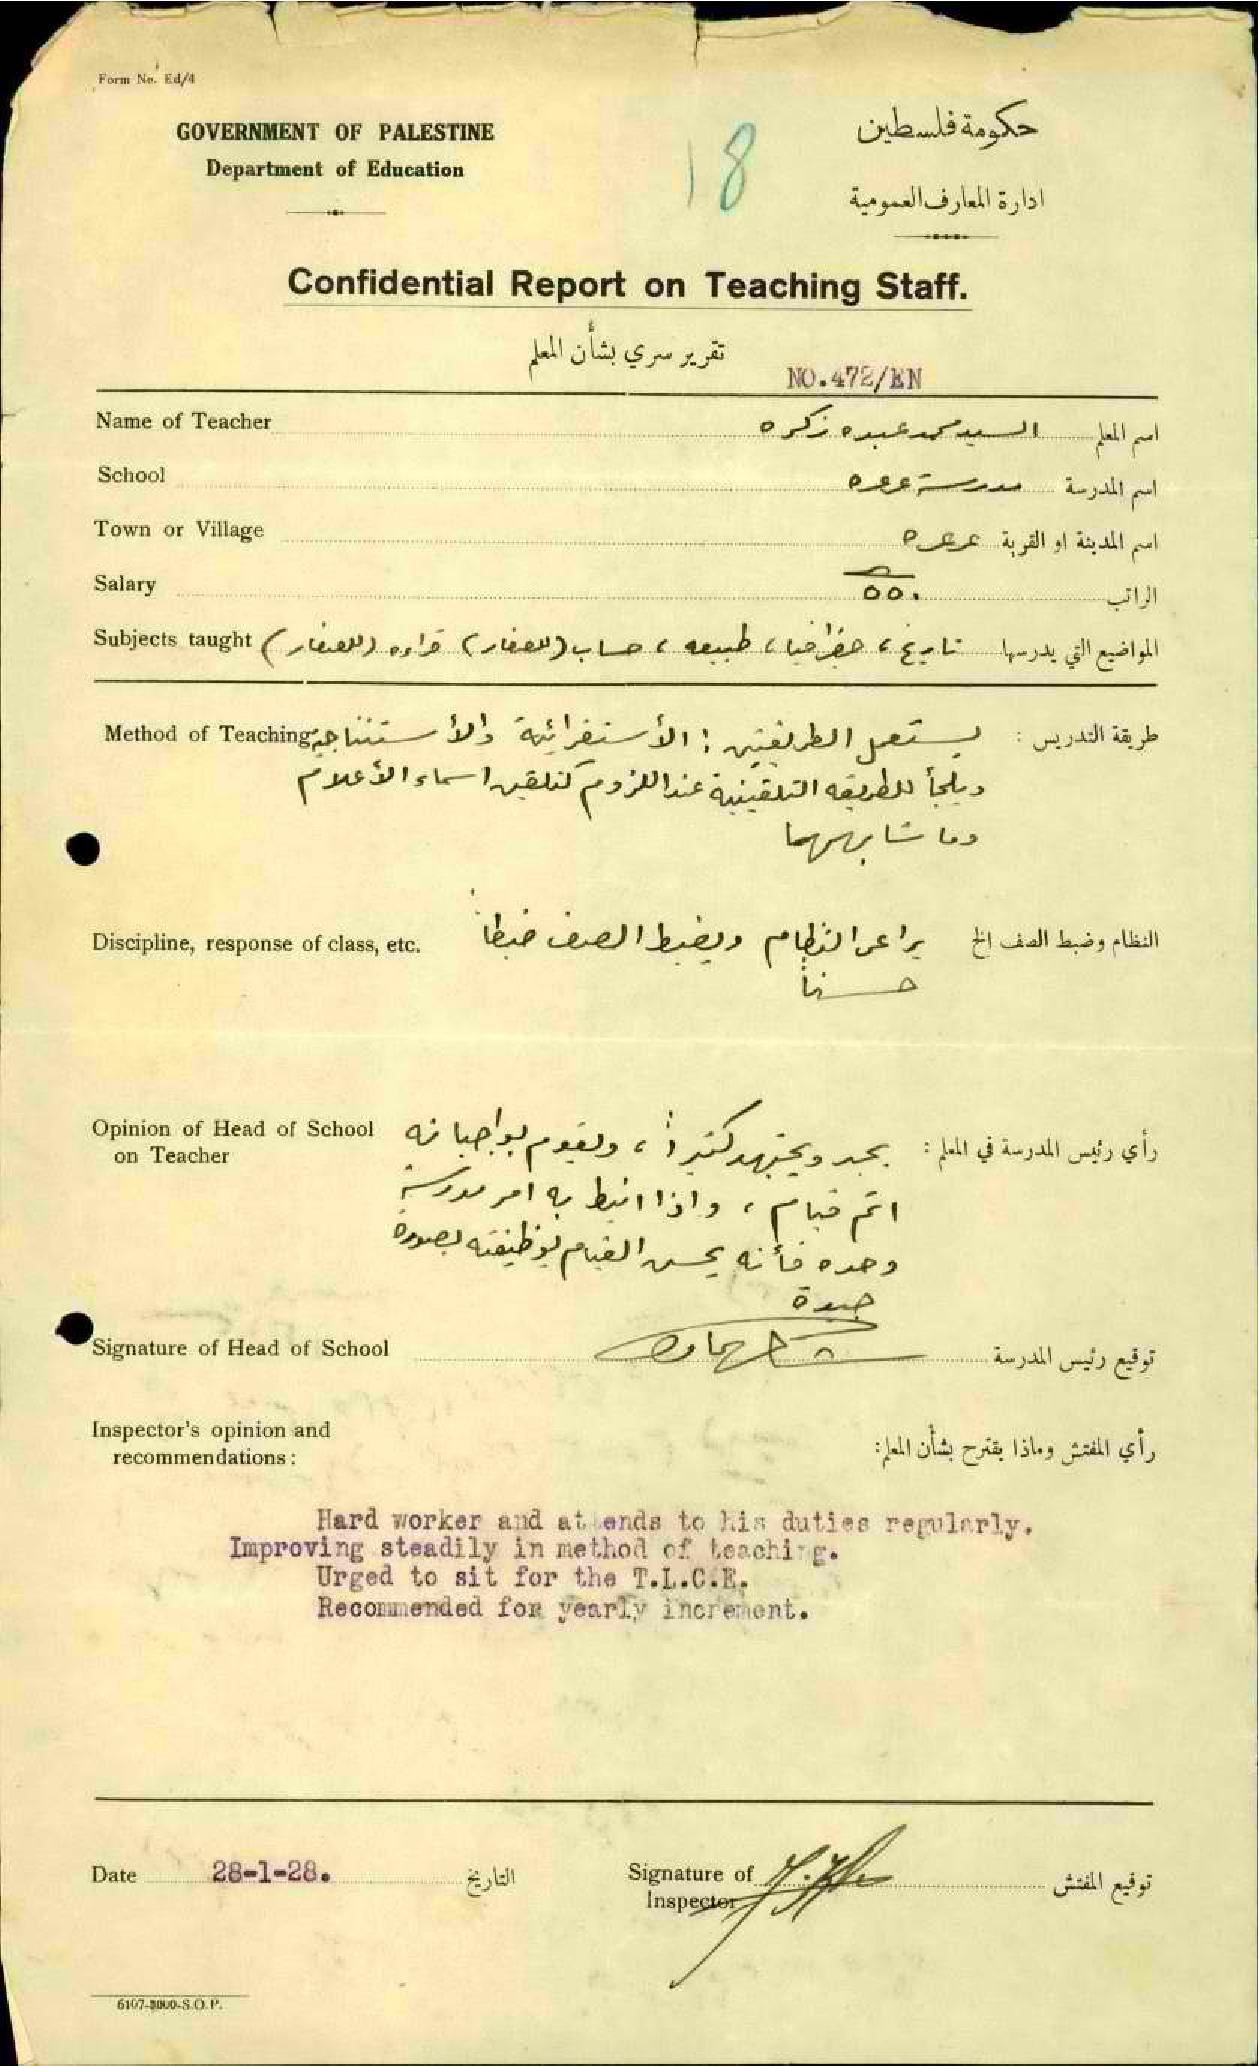 Form No. Ed/4
GOVERNMENT OF PALESTINE
Department of Education
حكومة فلسطين
ادارة المعارف العمومية
18
Confidential Report on Teaching Staff.
تقرير سري بشأن المعلم
NO.472/EN
Name of Teacher السيد محمد عبده زكره اسم المعلم
School مدرسة عرعره اسم المدرسة
Town or Village عرعره اسم المدينة او القرية
Salary ٥٥٠ الراتب
Subjects taught تاريخ، جغرافيا، طبيعه، حساب (للصغار) قراءه (للصغار) المواضيع التي يدرسها
Method of Teaching يستعمل الطريقتين: الأستقرائية والأستنتاجية طريقة التدريس :
ويلجأ للطريقه التلقينية عند اللزوم كتلقين اسماء الأعلام
وما شابهها
Discipline, response of class, etc. يراعى النظام ويضبط الصف ضبطاً النظام وضبط الصف الخ
حسناً
Opinion of Head of School يجد ويجتهد كثيراً، ويقوم بواجباته رأي رئيس المدرسة في المعلم :
on Teacher
اتم قيام، واذا انيط به امر مدرسة
وحده فأنه يحسن القيام بوظيفته بصورة
جيدة
Signature of Head of School توقيع رئيس المدرسة
Inspector's opinion and
recommendations:
رأي المفتش وماذا يقترح بشأن المعلم:
Hard worker and attends to his duties regularly.
Improving steadily in method of teaching.
Urged to sit for the T.L.C.E.
Recommended for yearly increment.
Date 28-1-28. التاريخ
Signature of
Inspector
توقيع المفتش
6107-3000-S.O.P.